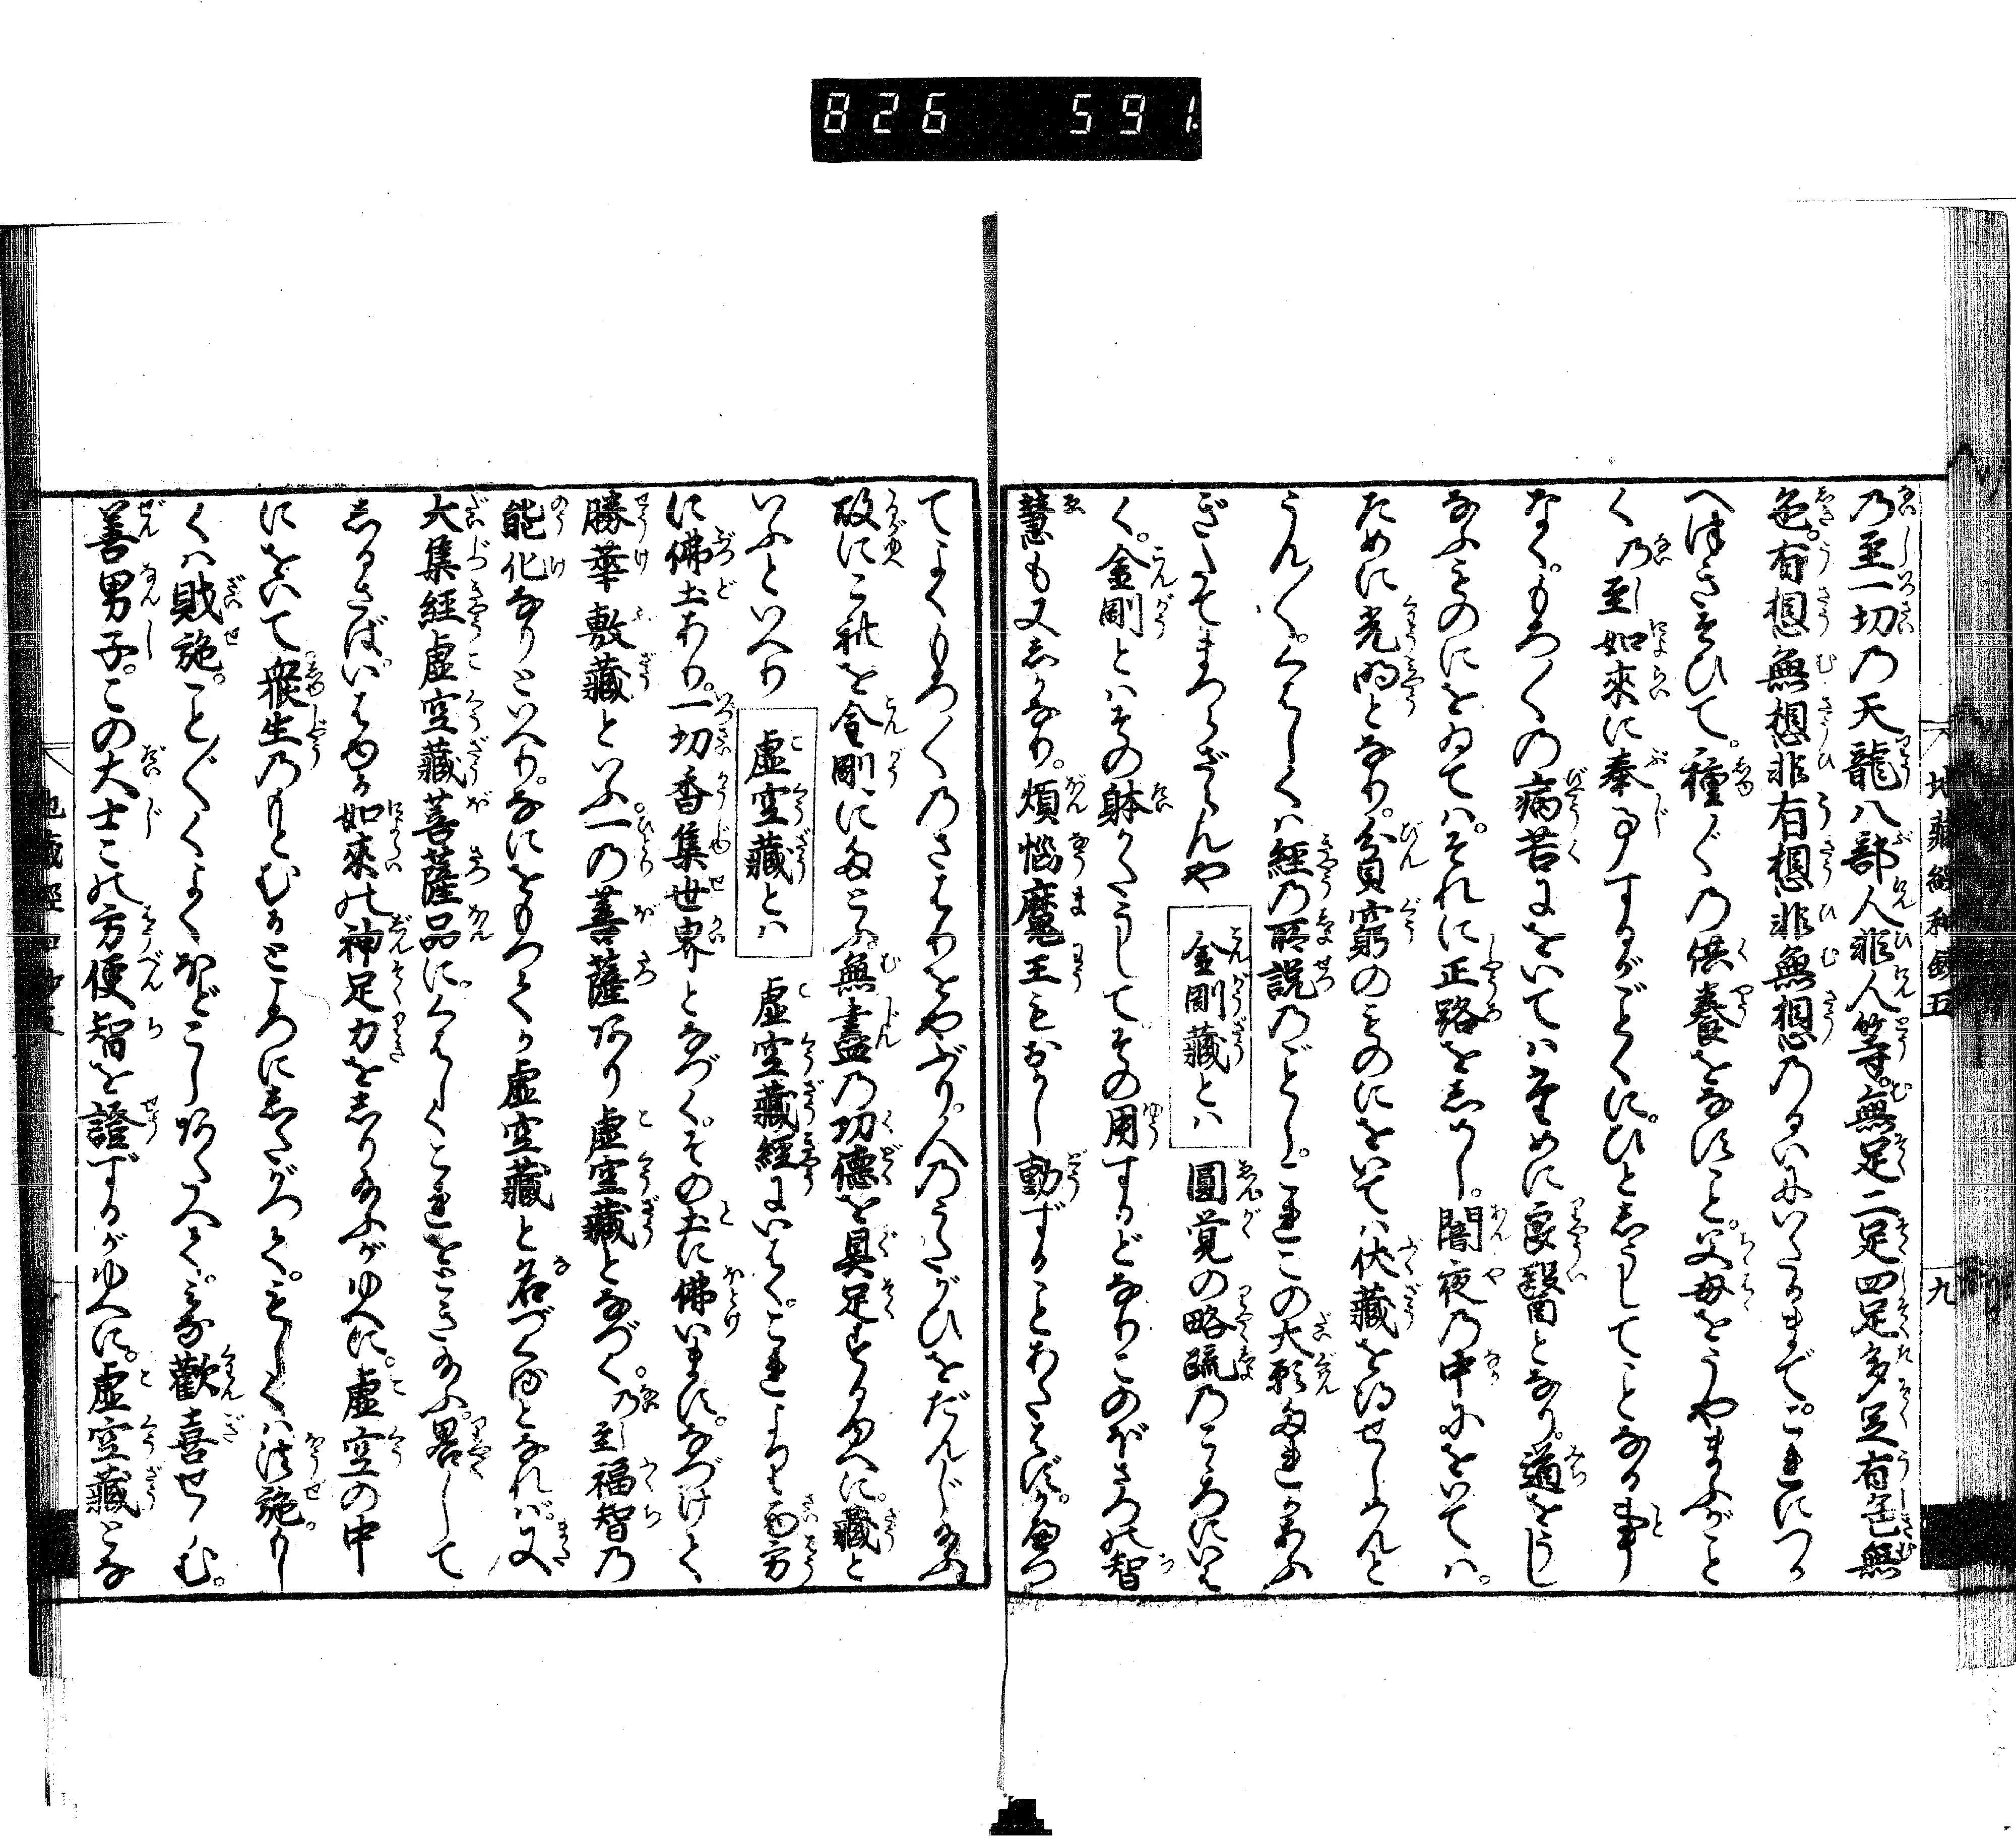 826 591
地藏經和鈔五 九
乃至一切乃天龍八部人非人等。無足二足四足多足有色無
色。有想無想非有想非無想乃るいにいたるまで。これにつか
へ侍さふらひて。種〴〵乃供養をなすこと。父母をうやまふがごと
く乃至如來に奉事するがごとくに。ひとしうしてことなる事
なく。もろ〳〵の病苦にをいてハためにに良醫となり。道をうし
なふものにをゐてハ。それに正路をしめし。闇夜乃中にをいてハ。
ために光明となり。貧窮のものにをいてハ伏藏を得せしめんと
うん〳〵。くはしくハ經乃所説乃ごとし。これこの大願なれたまふ
ざらんや 金剛藏とハ 圓覚の略疏乃こゝろにいは
く。金剛とハその躰かたうしてその用するどなりこのぼさろの智
慧も又しかなり。煩惱魔王もおかし動ずることあたはず。かつ
てよくもろ〳〵乃さはりをやぶり。人乃うたがひをだんじたまふ
故にこれを金剛にたとふ。無盡乃功德を具足するゆへに。藏と
いふといへり 虚空藏とハ 虚空藏經にいはく。これより西方
に佛土あり。一切香集世界となづく。その土に佛います。なづけて
勝華敷藏といふ。一の菩薩あり虚空藏となづく。乃至福智乃
能化なりといへり。なにをもつてか虚空藏と名づくるとなれバ。又
大集經虚空藏菩薩品に。くはしくこれをときたまふ。畧して
しるさば。いはゆる如來の神足力をしりたまふがゆへに。虚空の中
にをいて衆生乃もとむるところにしたがつて。もしくハ法施。もし
くハ財施。こと〴〵くよくほどこしあたへて。みな歡喜せしむ。
善男子。この大士この方便智を證ずるがゆへに。虚空藏とな